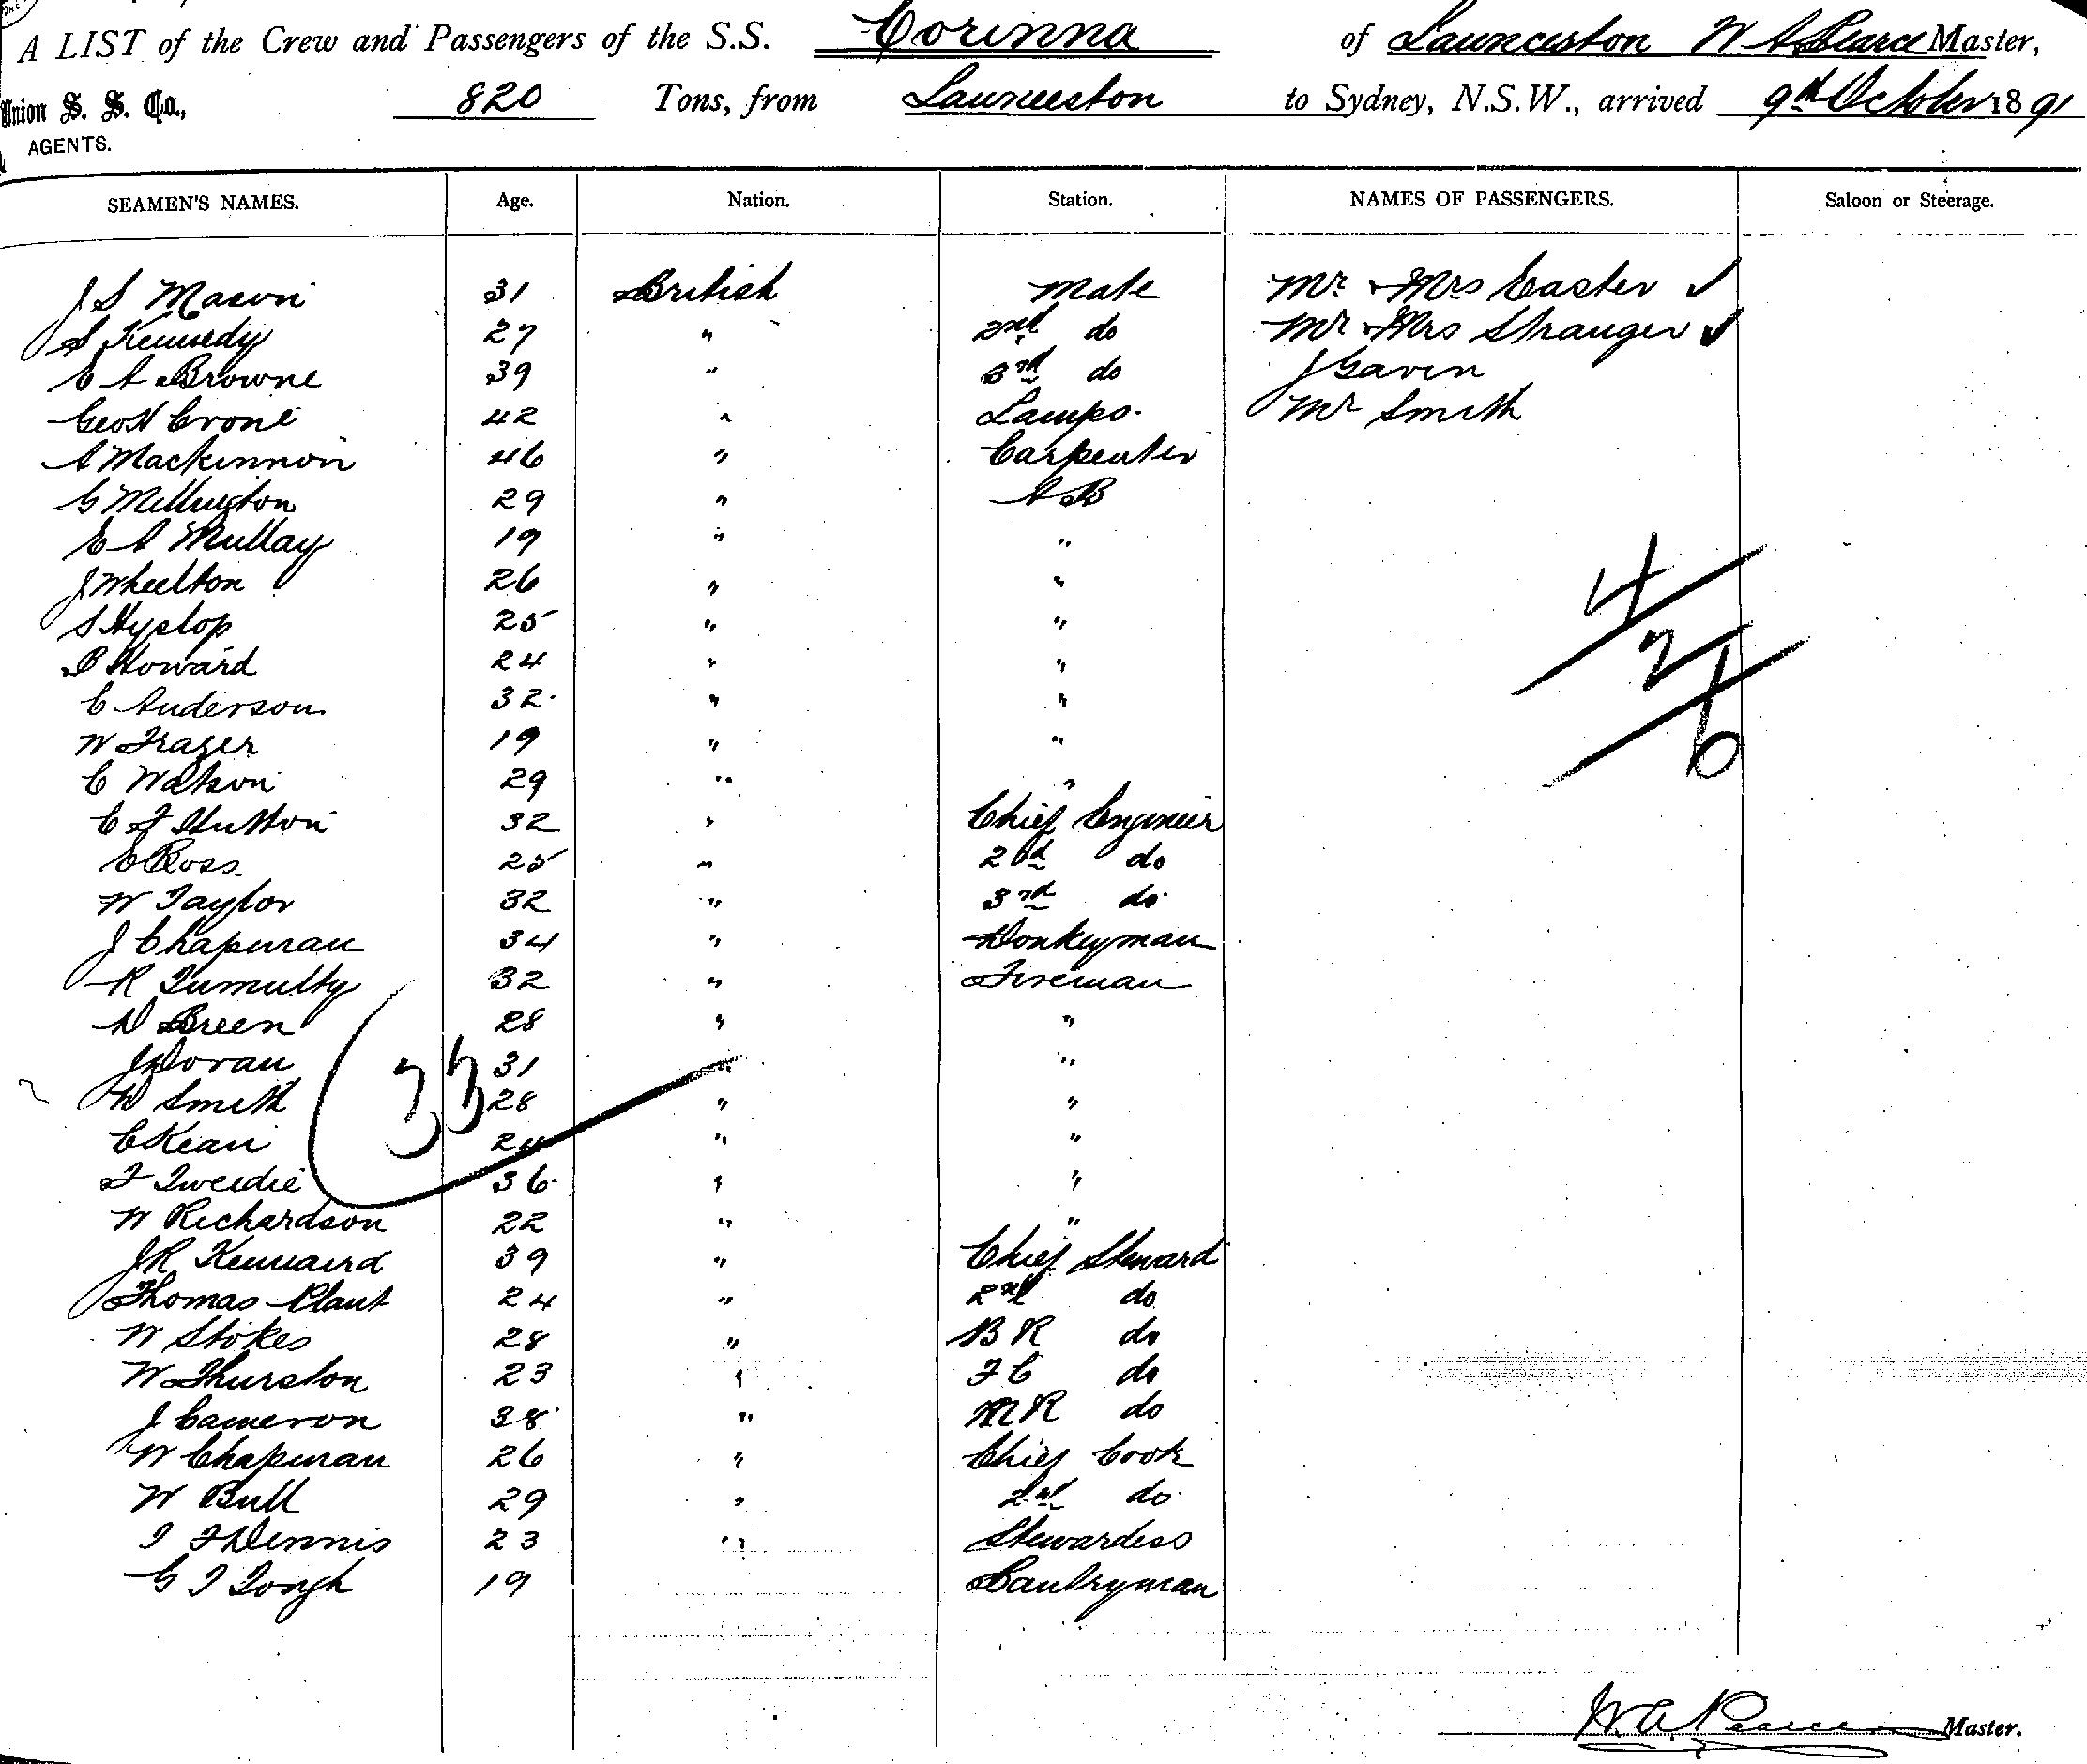 A LIST of the Crew and Passengers of the S.S. Corinna of Launceston W A Pearce Master,
Union S. S. Co., 820 Tons, from Launceston to Sydney, N.S.W., arrived 9th October 1891
AGENTS.
SEAMEN'S NAMES. Age. Nation. Station. NAMES OF PASSENGERS. Saloon or Steerage.
J S Mason 31 British Mate Mr & Mrs Easter ✓
S Kennedy 27 " 2nd do Mr & Mrs Stranger ✓
E A Browne 39 " 3rd do J Gaven
Geo H Crone 42 " Lamps. Mr Smith
A Mackinnon 46 " Carpenter
G Millington 29 " A B
E A Mullay 19 " "
J Wheelton 26 " "
S Hyslop 25 " "
B Howard 24 " "
C Anderson 32 " "
W Frazer 19 " "
C Watson 29 " "
C F Hutton 32 " Chief Engineer
E Ross 25 " 2nd do
W Taylor 32 " 3rd do
J Chapman 34 " Donkeyman
R Tumulty 32 " Fireman
D Breen 28 " "
J Doran 31 " "
D Smith 28 " "
C Kean 24 " "
F Tweedie 36 " "
W Richardson 22 " "
J R Kennaird 39 " Chief Steward
Thomas Plant 24 " 2nd do
W Stokes 28 " B R do
W Thurston 23 " F C do
J Cameron 38 " M R do
W Chapman 26 " Chief Cook
W Bull 29 " 2nd do
I F Dennis 23 " Stewardess
G T Tough 19 " Pantryman
4
2
6
33
W. A. Pearce Master.